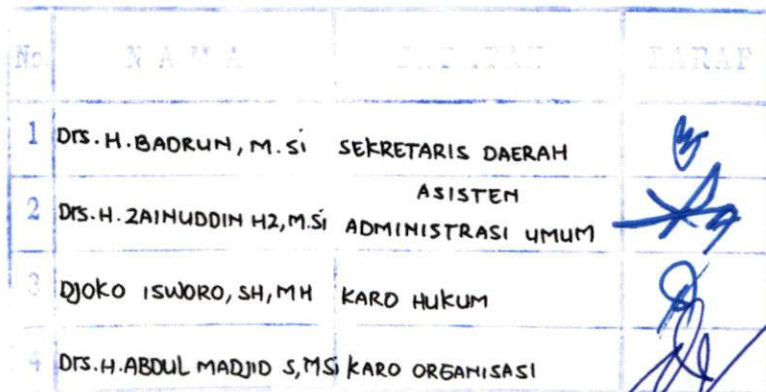 No NAMA JABATAN PARAF
1 Drs. H. BADRUN, M.Si SEKRETARIS DAERAH
ASISTEN
2 Drs. H. ZAINUDDIN HZ, M.Si ADMINISTRASI UMUM
3 DJOKO ISWORO, SH, MH KARO HUKUM
4 Drs. H. ABDUL MADJID S, MSi KARO ORGANISASI